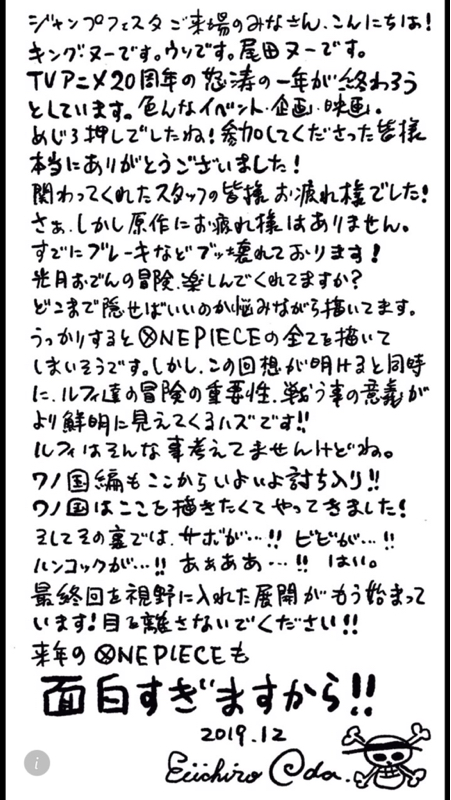 ジャンプフェスタご来場のみなさん、こんにちは!
キング・ヌーです。ウソです。尾田ヌーです。
TVアニメ20周年の怒涛の一年が終わろう
としています。色んなイベント・企画・映画。
めじろ押しでしたね!参加してくださった皆様
本当にありがとうございました!
関わってくれたスタッフの皆様お疲れ様でした!
さぁ、しかし原作にお疲れ様はありません。
すでにブレーキなどブッ壊れております!
光月おでんの冒険、楽しんでくれてますか?
どこまで隠せばいいのか悩みながら描いてます。
うっかりするとONE PIECEの全てを描いて
しまいそうです。しかし、この回想が明けると同時
に、ルフィ達の冒険の重要性、戦う事の意義が
より鮮明に見えてくるハズです!!
ルフィはそんな事考えてませんけどね。
ワノ国編もここからいよいよ討ち入り!!
ワノ国はここを描きたくてやってきました!
そしてその裏では、サボが…!! ビビが…!!
ハンコックが…!! あぁああ…!! はい。
最終回を視野に入れた展開がもう始まって
います!目を離さないでください!!
来年のONE PIECEも
面白すぎますから!!
2019.12
Eiichiro Oda.